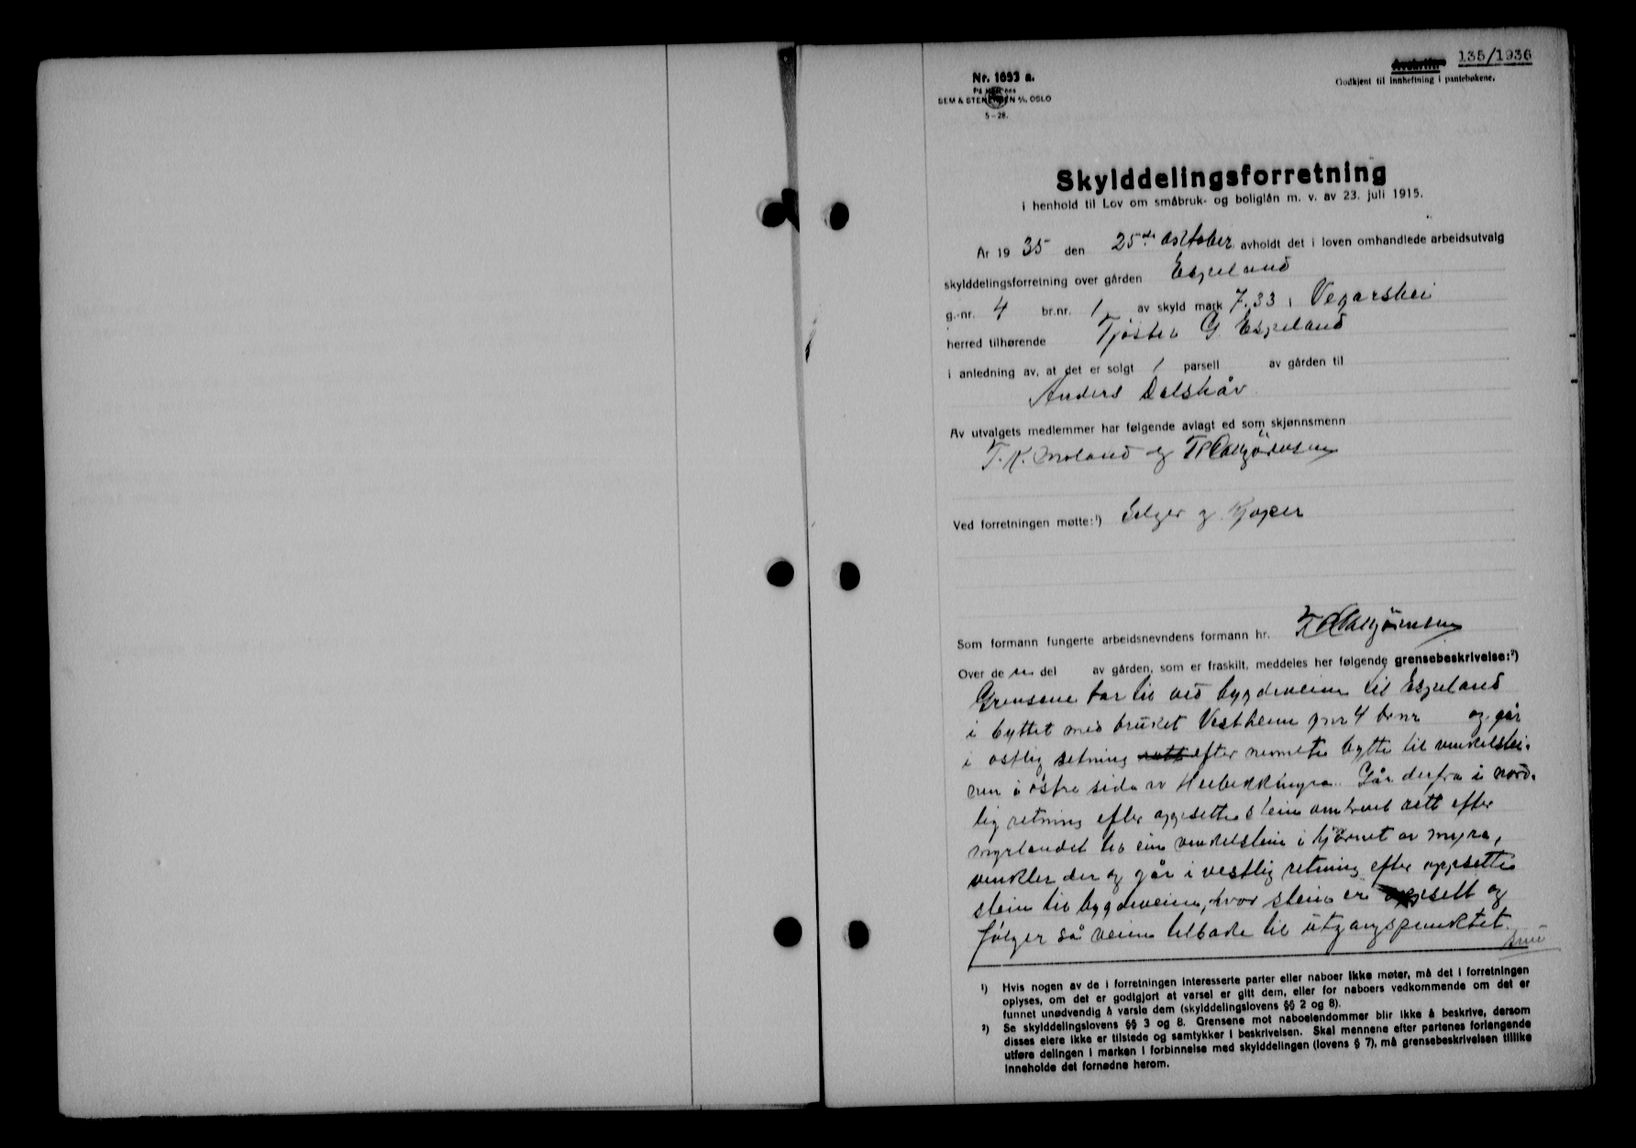 135/1936
Nr. 1693 a.
SEM & STENERSEN A/S, OSLO
5-28.
Godkjent til innheftning i pantebøkene.
Skylddelingsforretning
i henhold til Lov om småbruk- og boliglån m. v. av 23. juli 1915.
År 1935 den 25de October avholdt det i loven omhandlede arbeidsutvalg
skylddelingsforretning over gården Espeland
g.-nr. 4 br.nr. 1 av skyld mark 7,33 i Vegårshei
herred tilhørende Tjøstov G. Espeland
i anledning av, at det er solgt 1 parsell av gården til
Anders Dalskår
Av utvalgets medlemmer har følgende avlagt ed som skjønnsmenn
T. K. Moland og
Ved forretningen møtte:¹) Selger og Kjøper
Som formann fungerte arbeidsnevndens formann hr.
Over de n del av gården, som er fraskilt, meddeles her følgende grensebeskrivelse:²)
Grensene tar til ved bygdeveien til Espeland
i byttet med bruket Vestheim gnr 4 brnr og går
i østlig retning efter nevnte bytte til vinkelstei-
nen i østre side av. Går derfra i nord-
lig retning efter oppsette stein omtrent rett efter
myrlandet til ein vinkelstein i hjørnet av myra,
vinkler der og går i vestlig retning efter oppsette
stein til bygdeveien, hvor stein er oppsett og
følger så veien tilbake til utgangspunktet.
¹) Hvis nogen av de i forretningen interesserte parter eller naboer ikke møter, må det i forretningen
oplyses, om det er godtgjort at varsel er gitt dem, eller for naboers vedkommende om det er
funnet unødvendig å varsle dem (skylddelingslovens §§ 2 og 8).
²) Se skylddelingslovens §§ 3 og 8. Grensene mot naboeiendommer blir ikke å beskrive, dersom
disses eiere ikke er tilstede og samtykker i beskrivelsen. Skal mennene efter partenes forlangende
utføre delingen i marken i forbinnelse med skylddelingen (lovens § 7), må grensebeskrivelsen tillike
inneholde det fornødne herom.